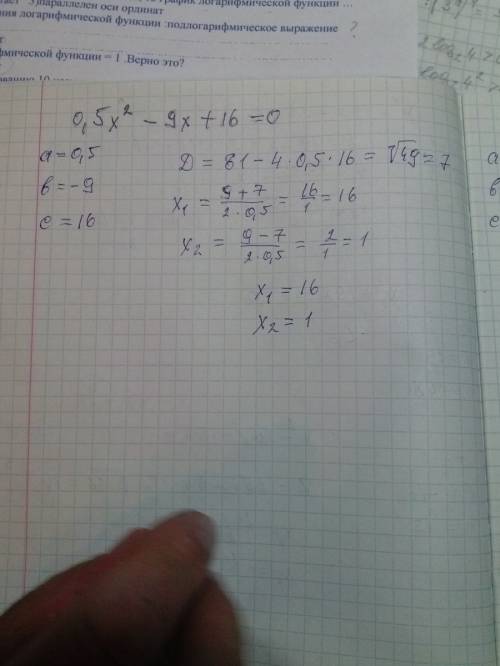 3)параллелен оси ординат
ния логарифмической функции :подлогарифмическое выражение ?
фмической функции = 1 .Верно это?
0,5x² - 9x + 16 = 0
a = 0,5
в = -9
c = 16
D = 81 - 4·0,5·16 = √49 = 7
x₁ = (9+7)/(2·0,5) = 16/1 = 16
x₂ = (9-7)/(2·0,5) = 2/1 = 1
x₁ = 16
x₂ = 1
a
в
c